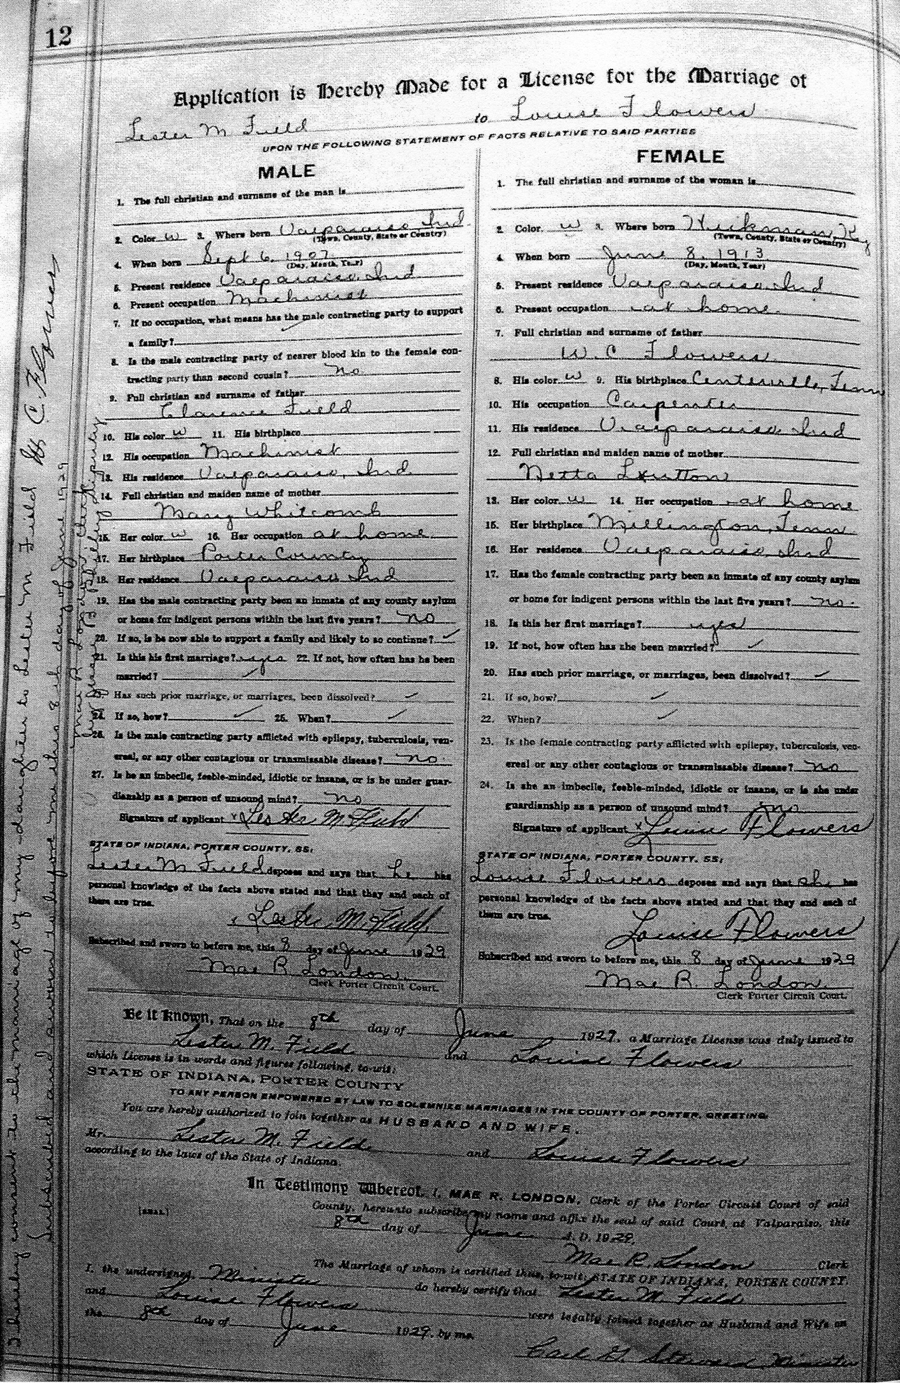 12
Application is Hereby Made for a License for the Marriage of
Lester M Field to Louise Flowers
UPON THE FOLLOWING STATEMENT OF FACTS RELATIVE TO SAID PARTIES
MALE
1. The full christian and surname of the man is
2. Color w 3. Where born Valparaiso, Ind
(Town, County, State or Country)
4. When born Sept 6, 1907
(Day, Month, Year)
5. Present residence Valparaiso, Ind
6. Present occupation Machinist
7. If no occupation, what means has the male contracting party to support
a family?
8. Is the male contracting party of nearer blood kin to the female con-
tracting party than second cousin? No.
9. Full christian and surname of father
Clarence Field
10. His color w 11. His birthplace
12. His occupation Machinist
13. His residence Valparaiso, Ind
14. Full christian and maiden name of mother
Mary Whitcomb
15. Her color w 16. Her occupation at home.
17. Her birthplace Porter County
18. Her residence Valparaiso Ind
19. Has the male contracting party been an inmate of any county asylum
or home for indigent persons within the last five years? No
20. If so, is he now able to support a family and likely to so continue? ✓
21. Is this his first marriage? yes 22. If not, how often has he been
married? ✓
23. Has such prior marriage, or marriages, been dissolved? ✓
24. If so, how? ✓ 25. When? ✓
26. Is the male contracting party afflicted with epilepsy, tuberculosis, ven-
ereal, or any other contagious or transmissable disease? no.
27. Is he an imbecile, feeble-minded, idiotic or insane, or is he under guar-
dianship as a person of unsound mind? no
Signature of applicant x Lester M Field
STATE OF INDIANA, PORTER COUNTY, SS:
Lester M Field deposes and says that he has
personal knowledge of the facts above stated and that they and each of
them are true.
Lester M. Field.
Subscribed and sworn to before me, this 8 day of June 1929
Mae R. London.
Clerk Porter Circuit Court.
FEMALE
1. The full christian and surname of the woman is
2. Color. w 3. Where born Hickman, Ky
(Town, County, State or Country)
4. When born June 8, 1913
(Day, Month, Year)
5. Present residence Valparaiso, Ind
6. Present occupation at home.
7. Full christian and surname of father
W. C Flowers.
8. His color w 9. His birthplace Centerville, Tenn
10. His occupation Carpenter
11. His residence Valparaiso Ind
12. Full christian and maiden name of mother
Netta
13. Her color. w 14. Her occupation at home
15. Her birthplace Millington, Tenn.
16. Her residence Valparaiso Ind
17. Has the female contracting party been an inmate of any county asylum
or home for indigent persons within the last five years? no.
18. Is this her first marriage? yes
19. If not, how often has she been married? ✓
20. Has such prior marriage, or marriages, been dissolved? ✓
21. If so, how? ✓
22. When? ✓
23. Is the female contracting party afflicted with epilepsy, tuberculosis, ven-
ereal or any other contagious or transmissable disease? no
24. Is she an imbecile, feeble-minded, idiotic or insane, or is she under
guardianship as a person of unsound mind? no
Signature of applicant x Louise Flowers
STATE OF INDIANA, PORTER COUNTY, SS:
Louise Flowers deposes and says that she has
personal knowledge of the facts above stated and that they and each of
them are true.
Louise Flowers
Subscribed and sworn to before me, this 8 day of June 1929
Mae R. London
Clerk Porter Circuit Court.
Be it known, That on the 8th day of June 1929, a Marriage License was duly issued to
Lester M. Field and Louise Flowers
which License is in words and figures following, to-wit:
STATE OF INDIANA, PORTER COUNTY
TO ANY PERSON EMPOWERED BY LAW TO SOLEMNIZE MARRIAGES IN THE COUNTY OF PORTER, GREETING:
You are hereby authorized to join together as HUSBAND AND WIFE.
Mr. Lester M. Field. and Louise Flowers
according to the laws of the State of Indiana.
In Testimony Whereof, I, MAE R. LONDON, Clerk of the Porter Circuit Court of said
County, hereunto subscribe my name and affix the seal of said Court, at Valparaiso, this
[SEAL] 8th day of June A. D. 1929.
Mae R. London Clerk
The Marriage of whom is certified thus, to-wit: STATE OF INDIANA, PORTER COUNTY.
I, the undersigned, Minister do hereby certify that Lester M. Field
and Louise Flowers were legally joined together as Husband and Wife on
the 8th day of June 1929. by me.
Carl Minister
I hereby consent to the marriage of my daughter to Lester M Field W C Flowers
Subscribed and sworn to before me this 8th day of June 1929
Mae R London, Clerk
Deputy